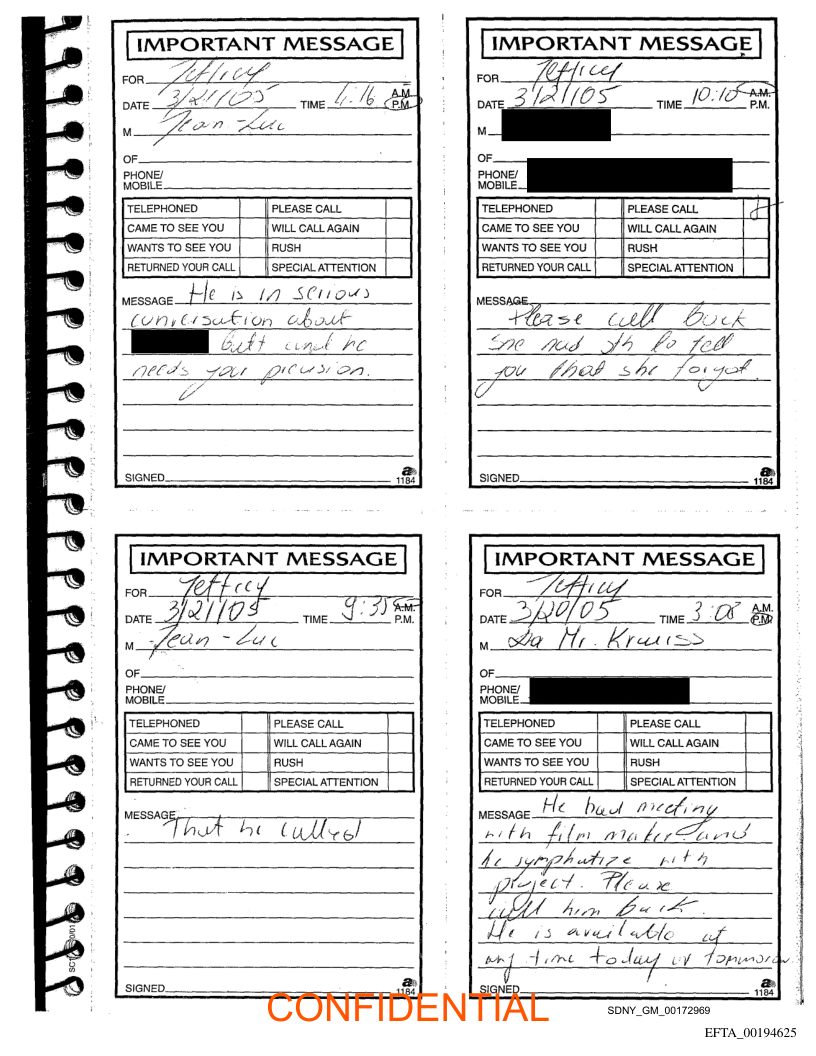 IMPORTANT MESSAGE
FOR Jeffrey
DATE 3/21/05 TIME 4:16 A.M. P.M.
M Jean-Luc
OF
PHONE/
MOBILE
TELEPHONED PLEASE CALL
CAME TO SEE YOU WILL CALL AGAIN
WANTS TO SEE YOU RUSH
RETURNED YOUR CALL SPECIAL ATTENTION
MESSAGE He is in serious
conversation about
butt and he
needs your precusion.
SIGNED
1184
IMPORTANT MESSAGE
FOR Jeffrey
DATE 3/21/05 TIME 10:10 A.M. P.M.
M
OF
PHONE/
MOBILE
TELEPHONED PLEASE CALL
CAME TO SEE YOU WILL CALL AGAIN
WANTS TO SEE YOU RUSH
RETURNED YOUR CALL SPECIAL ATTENTION
MESSAGE
Please call back
She had sth to tell
you that she forgot.
SIGNED
1184
IMPORTANT MESSAGE
FOR Jeffrey
DATE 3/21/05 TIME 9:35 A.M. P.M.
M Jean-Luc
OF
PHONE/
MOBILE
TELEPHONED PLEASE CALL
CAME TO SEE YOU WILL CALL AGAIN
WANTS TO SEE YOU RUSH
RETURNED YOUR CALL SPECIAL ATTENTION
MESSAGE
That he called
SIGNED
1184
IMPORTANT MESSAGE
FOR Jeffrey
DATE 3/20/05 TIME 3:08 A.M. P.M.
M Da Mr. Krauiss
OF
PHONE/
MOBILE
TELEPHONED PLEASE CALL
CAME TO SEE YOU WILL CALL AGAIN
WANTS TO SEE YOU RUSH
RETURNED YOUR CALL SPECIAL ATTENTION
MESSAGE He had meeting
with film maker and
he symphatize with
project. Please
call him back.
He is available at
any time today or tommorow
SIGNED
1184
CONFIDENTIAL
SDNY_GM_00172969
EFTA_00194625